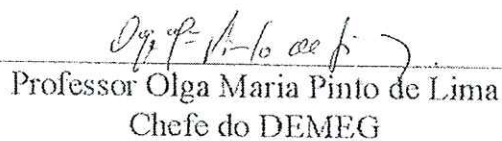 Professor Olga Maria Pinto de Lima
Chefe do DEMEG